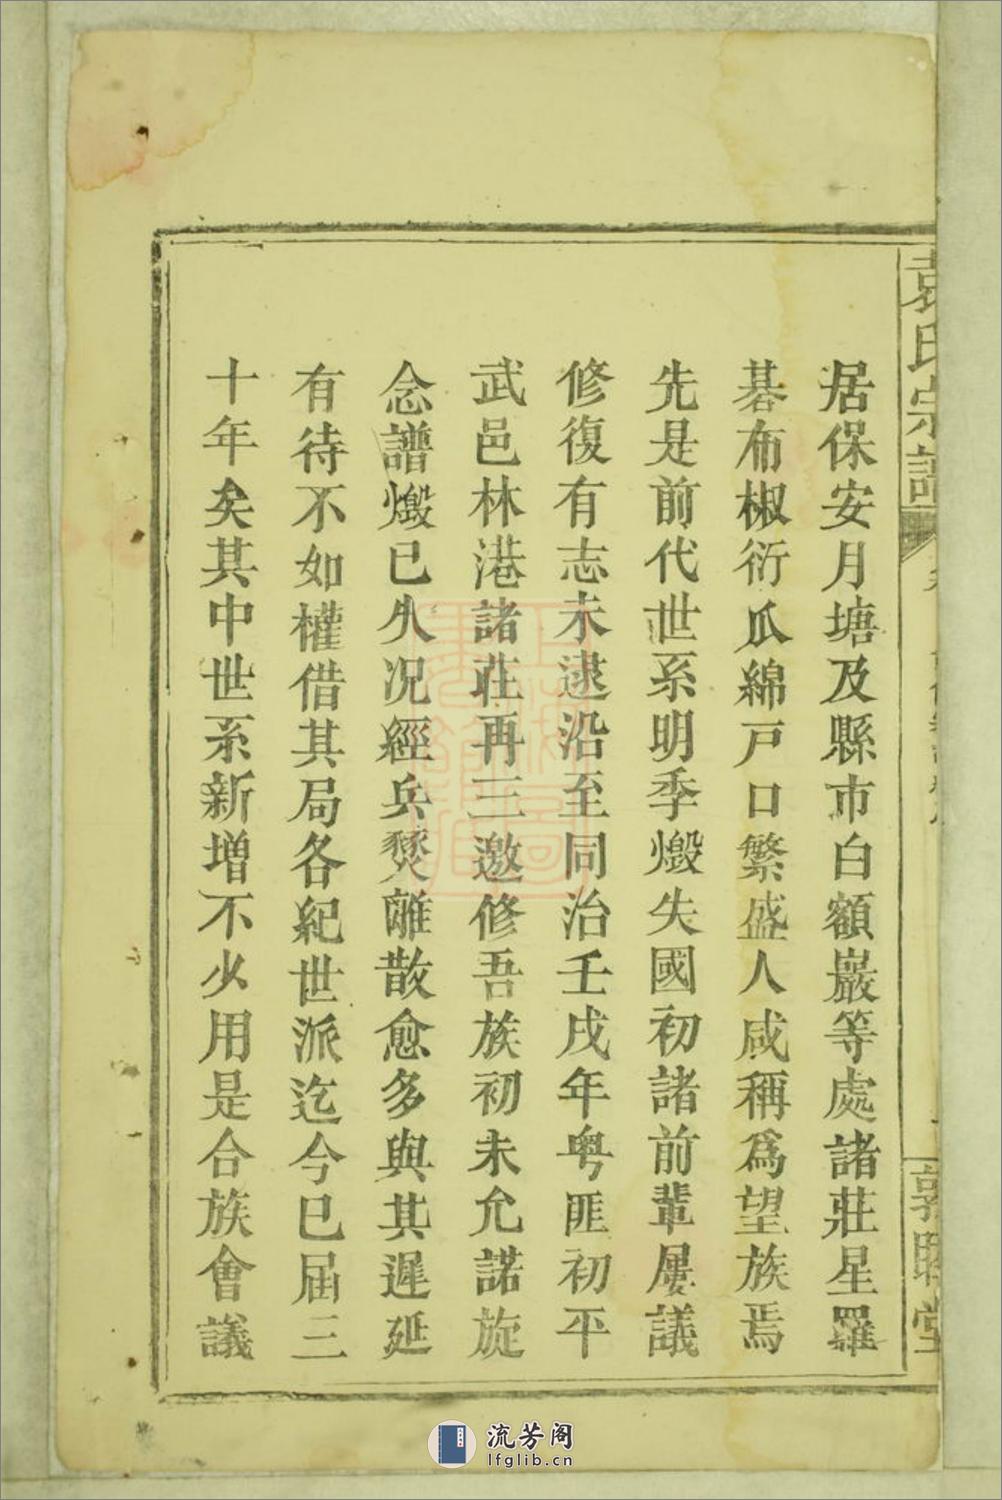 居保安月塘及縣市白額巖等處諸莊星羅
碁布椒衍瓜綿戸口繁盛人咸稱爲望族焉
先是前代世系明季燬失國初諸前輩屢議
修復有志未逮沿至同治壬戌年粤匪初平
武邑林港諸莊再三邀修吾族初未允諾旋
念譜燬已久况經兵燹離散愈多與其遲延
有待不如權借其局各紀世派迄今已屆三
十年矣其中世系新增不少用是合族會議
袁氏宗譜
堂
流芳阁
lfglib.cn